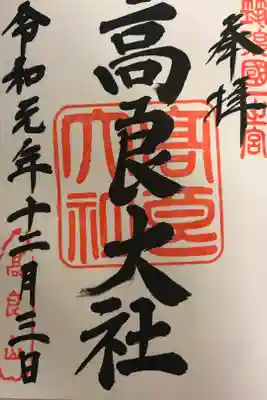 奉拝
筑後國一之宮
高良大社
髙良大社
令和元年十二月三日
髙良山